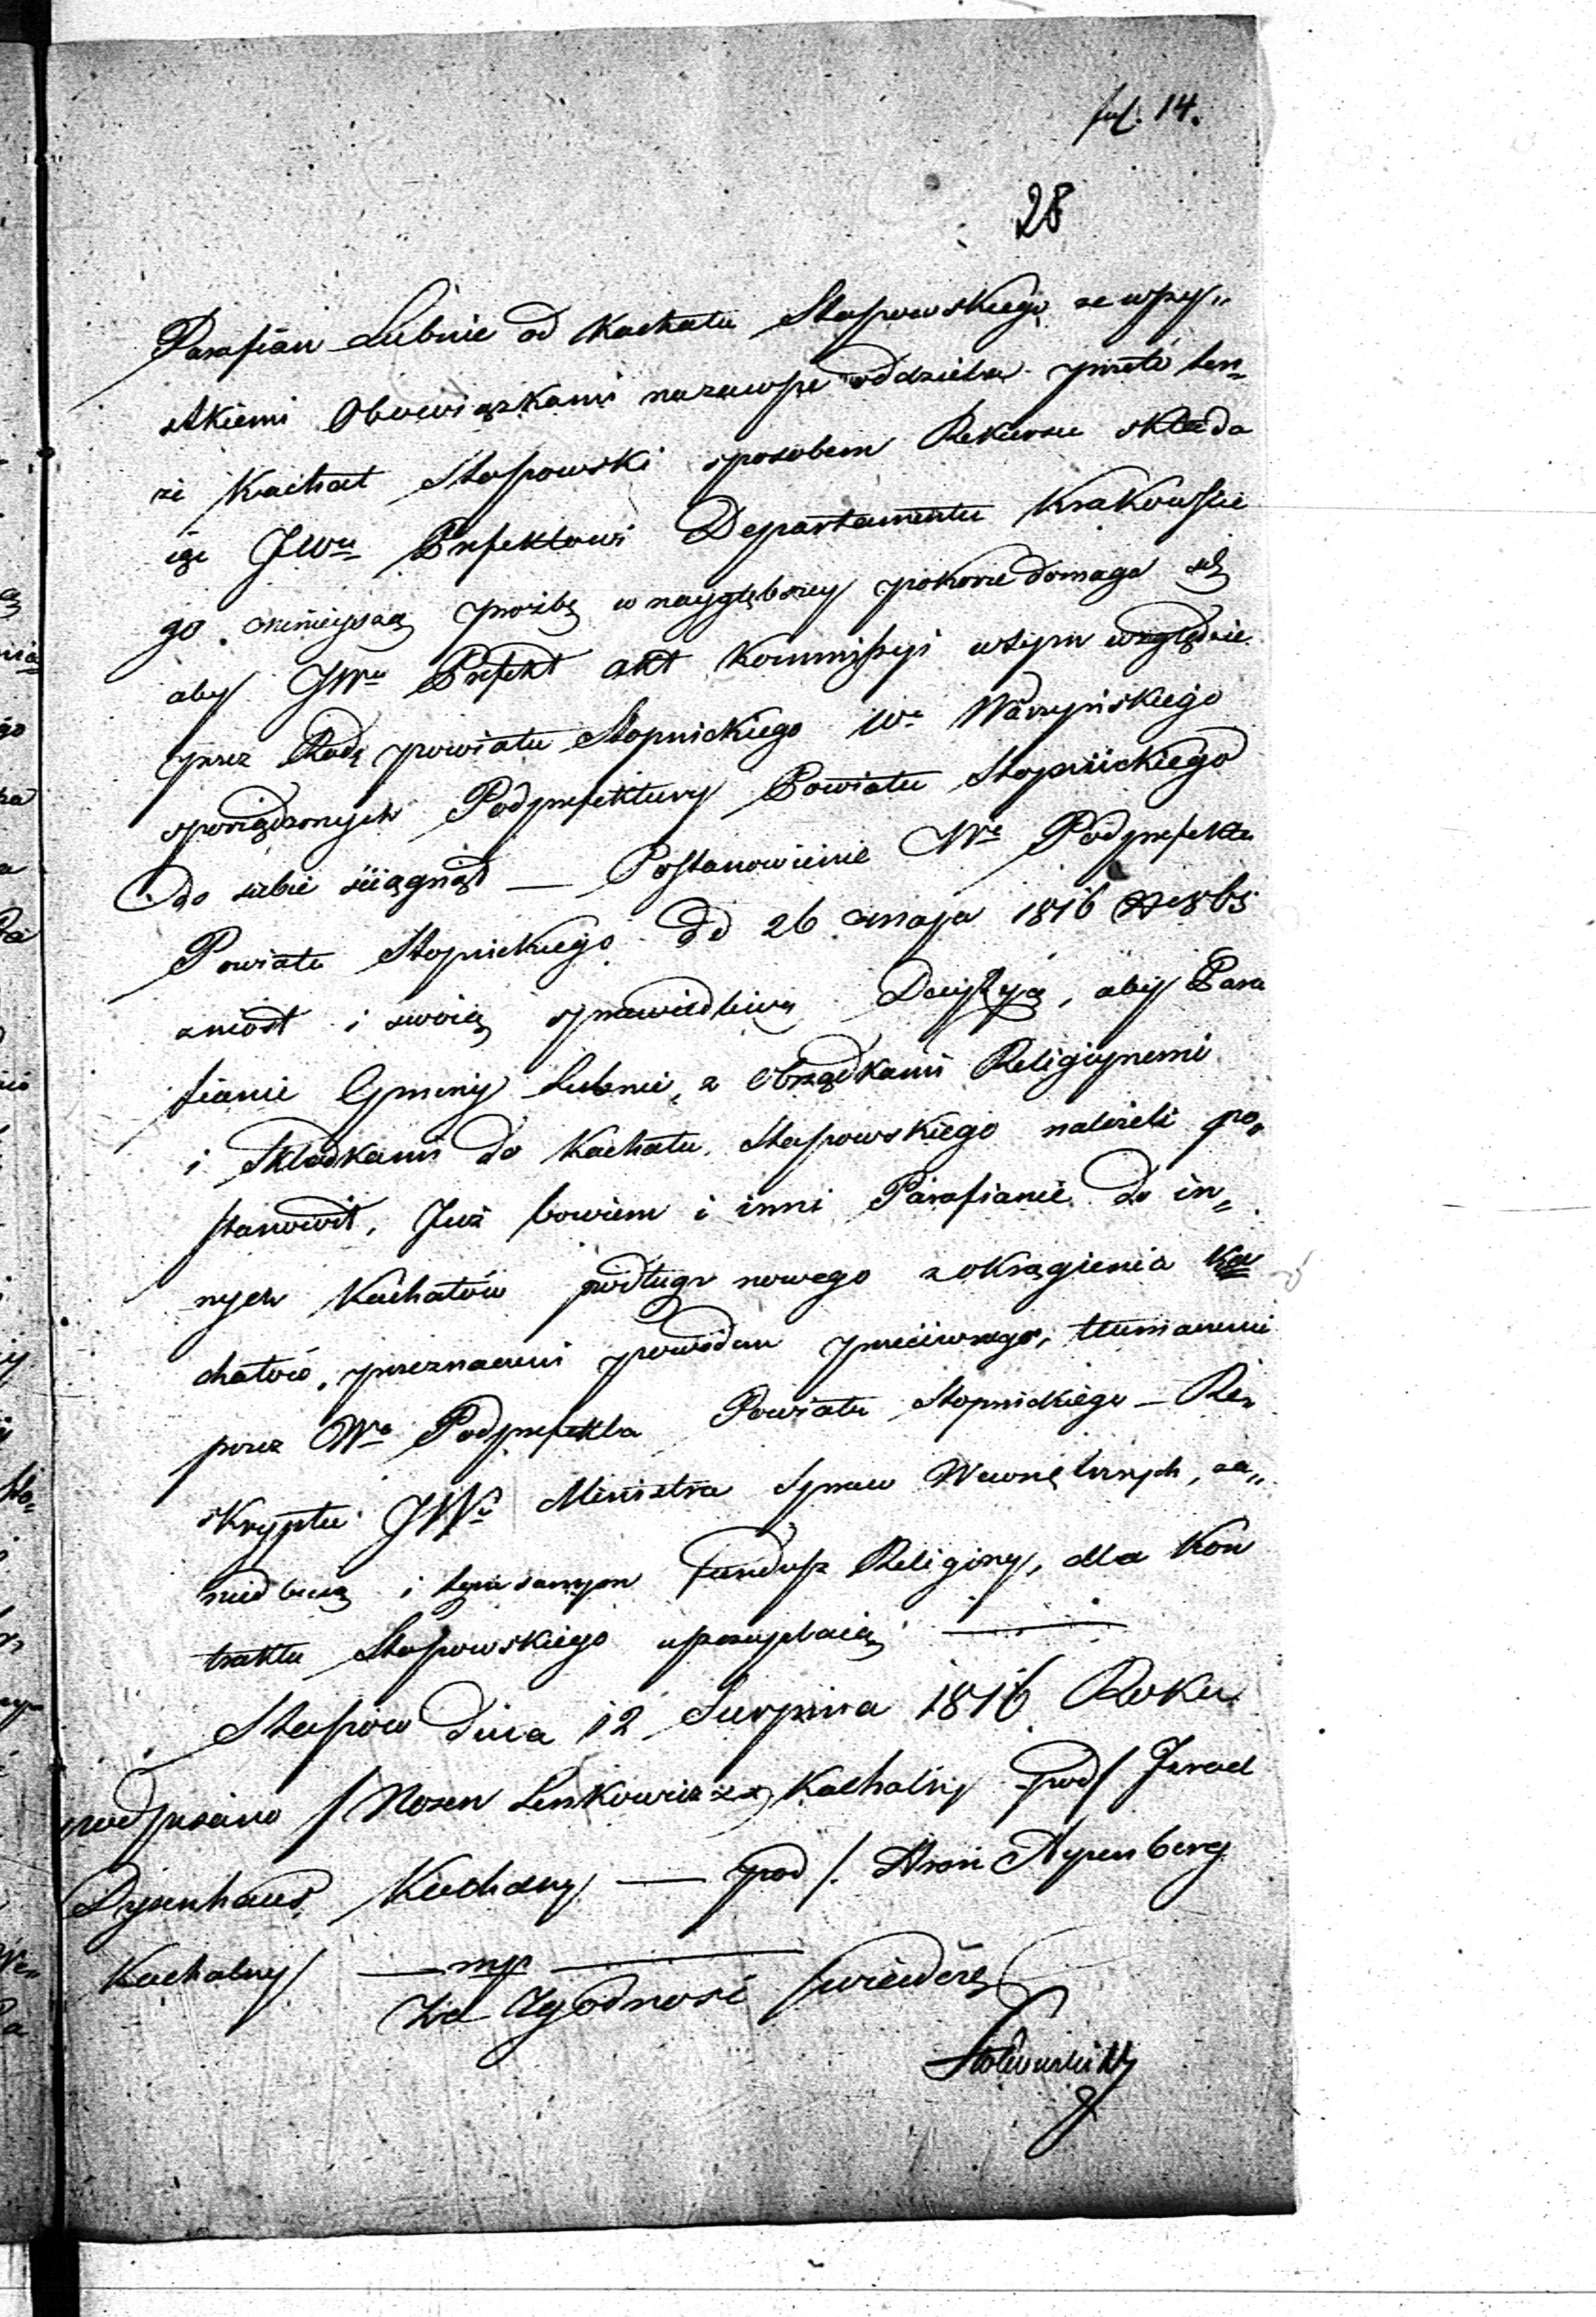 fol. 14.
28
Parafian Lubnie od Kachału Stopowskiego ze wszy„
stkiemi Obowiązkami nazawsze oddziela przeto ten„
że Kachał Stopowski sposobem Rekursu składa
iąc JWu Prefektowi Departamentu Krakowskie
go niniejszą prożbę w naygłębszey pokorze domaga się
aby JWu Prefekt akt Kommissyi wtym względzie
przez Radę powiatu Stopnickiego We
sporządzonych Podprefektury Powiatu Stopnickiego
do siebie ściągnął — Postanowienie We Podprefekta
Powiatu Stopnickiego dd 26 maja 1816
zniosł i swoią sprawiedliwą Decyzyą, aby Para
fianie Gminy Lubnie, z Obrządkami Religiynemi
i Składkami do Kachału Stopowskiego należeli po„
stanowił, Już bowiem i inni Parafianie do in„
nych Kachałów podług nowego zokrąglenia Ka
chałów, przeznaczeni powodem przeciwnego, tłumaczeni
przez We Podprefekta Powiatu Stopnickiego — Re„
skryptu JWo Ministra Spraw Wewnętrznych, za„
niedbuią i tym samym Fundusz Religiny, dla Kon
traktu Stopowskiego uszczuplaią —
Stopow dnia 12 Sierpnia 1816 Roku
podpisano / Mosen Lenkowicz Kachalny pod/ Izrael
Dysenhaus Kachalny — pod /. Aron Aypenberg
Kachalny — mp —
Za Zgodność świadczę